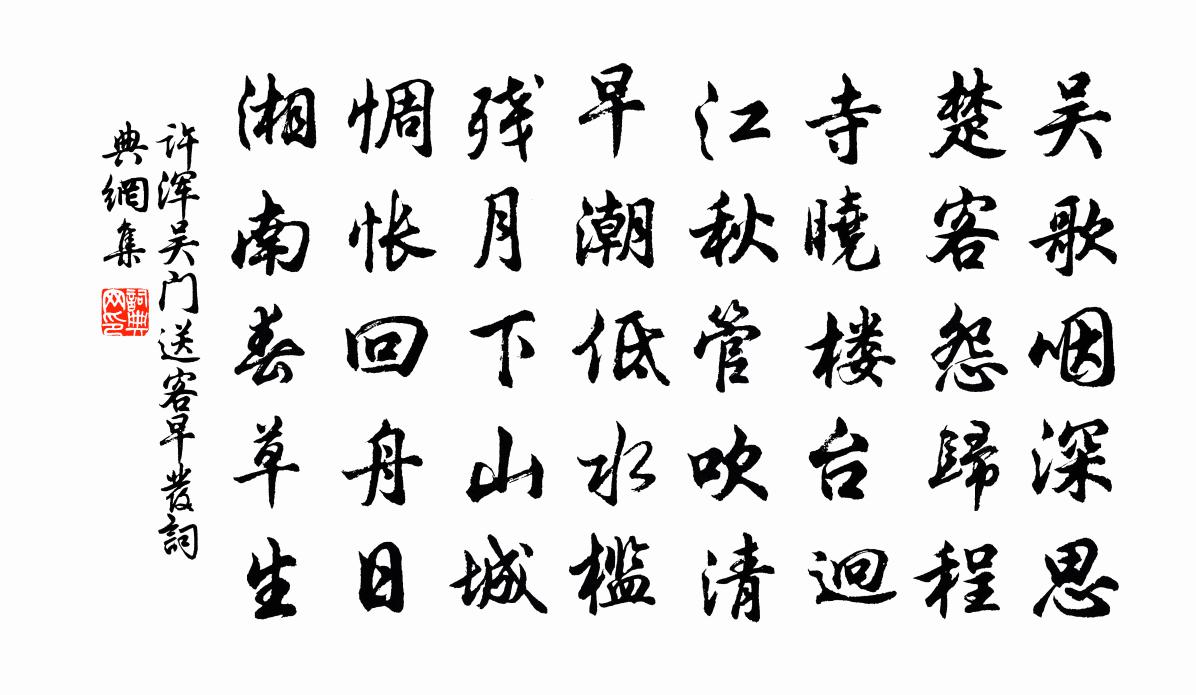 吴歌咽深思
楚客怨歸程
寺曉楼台迥
江秋管吹清
早潮低水檻
残月下山城
惆怅回舟日
湘南春草生
许浑吴门送客早發詞
典網集
詞典
网印